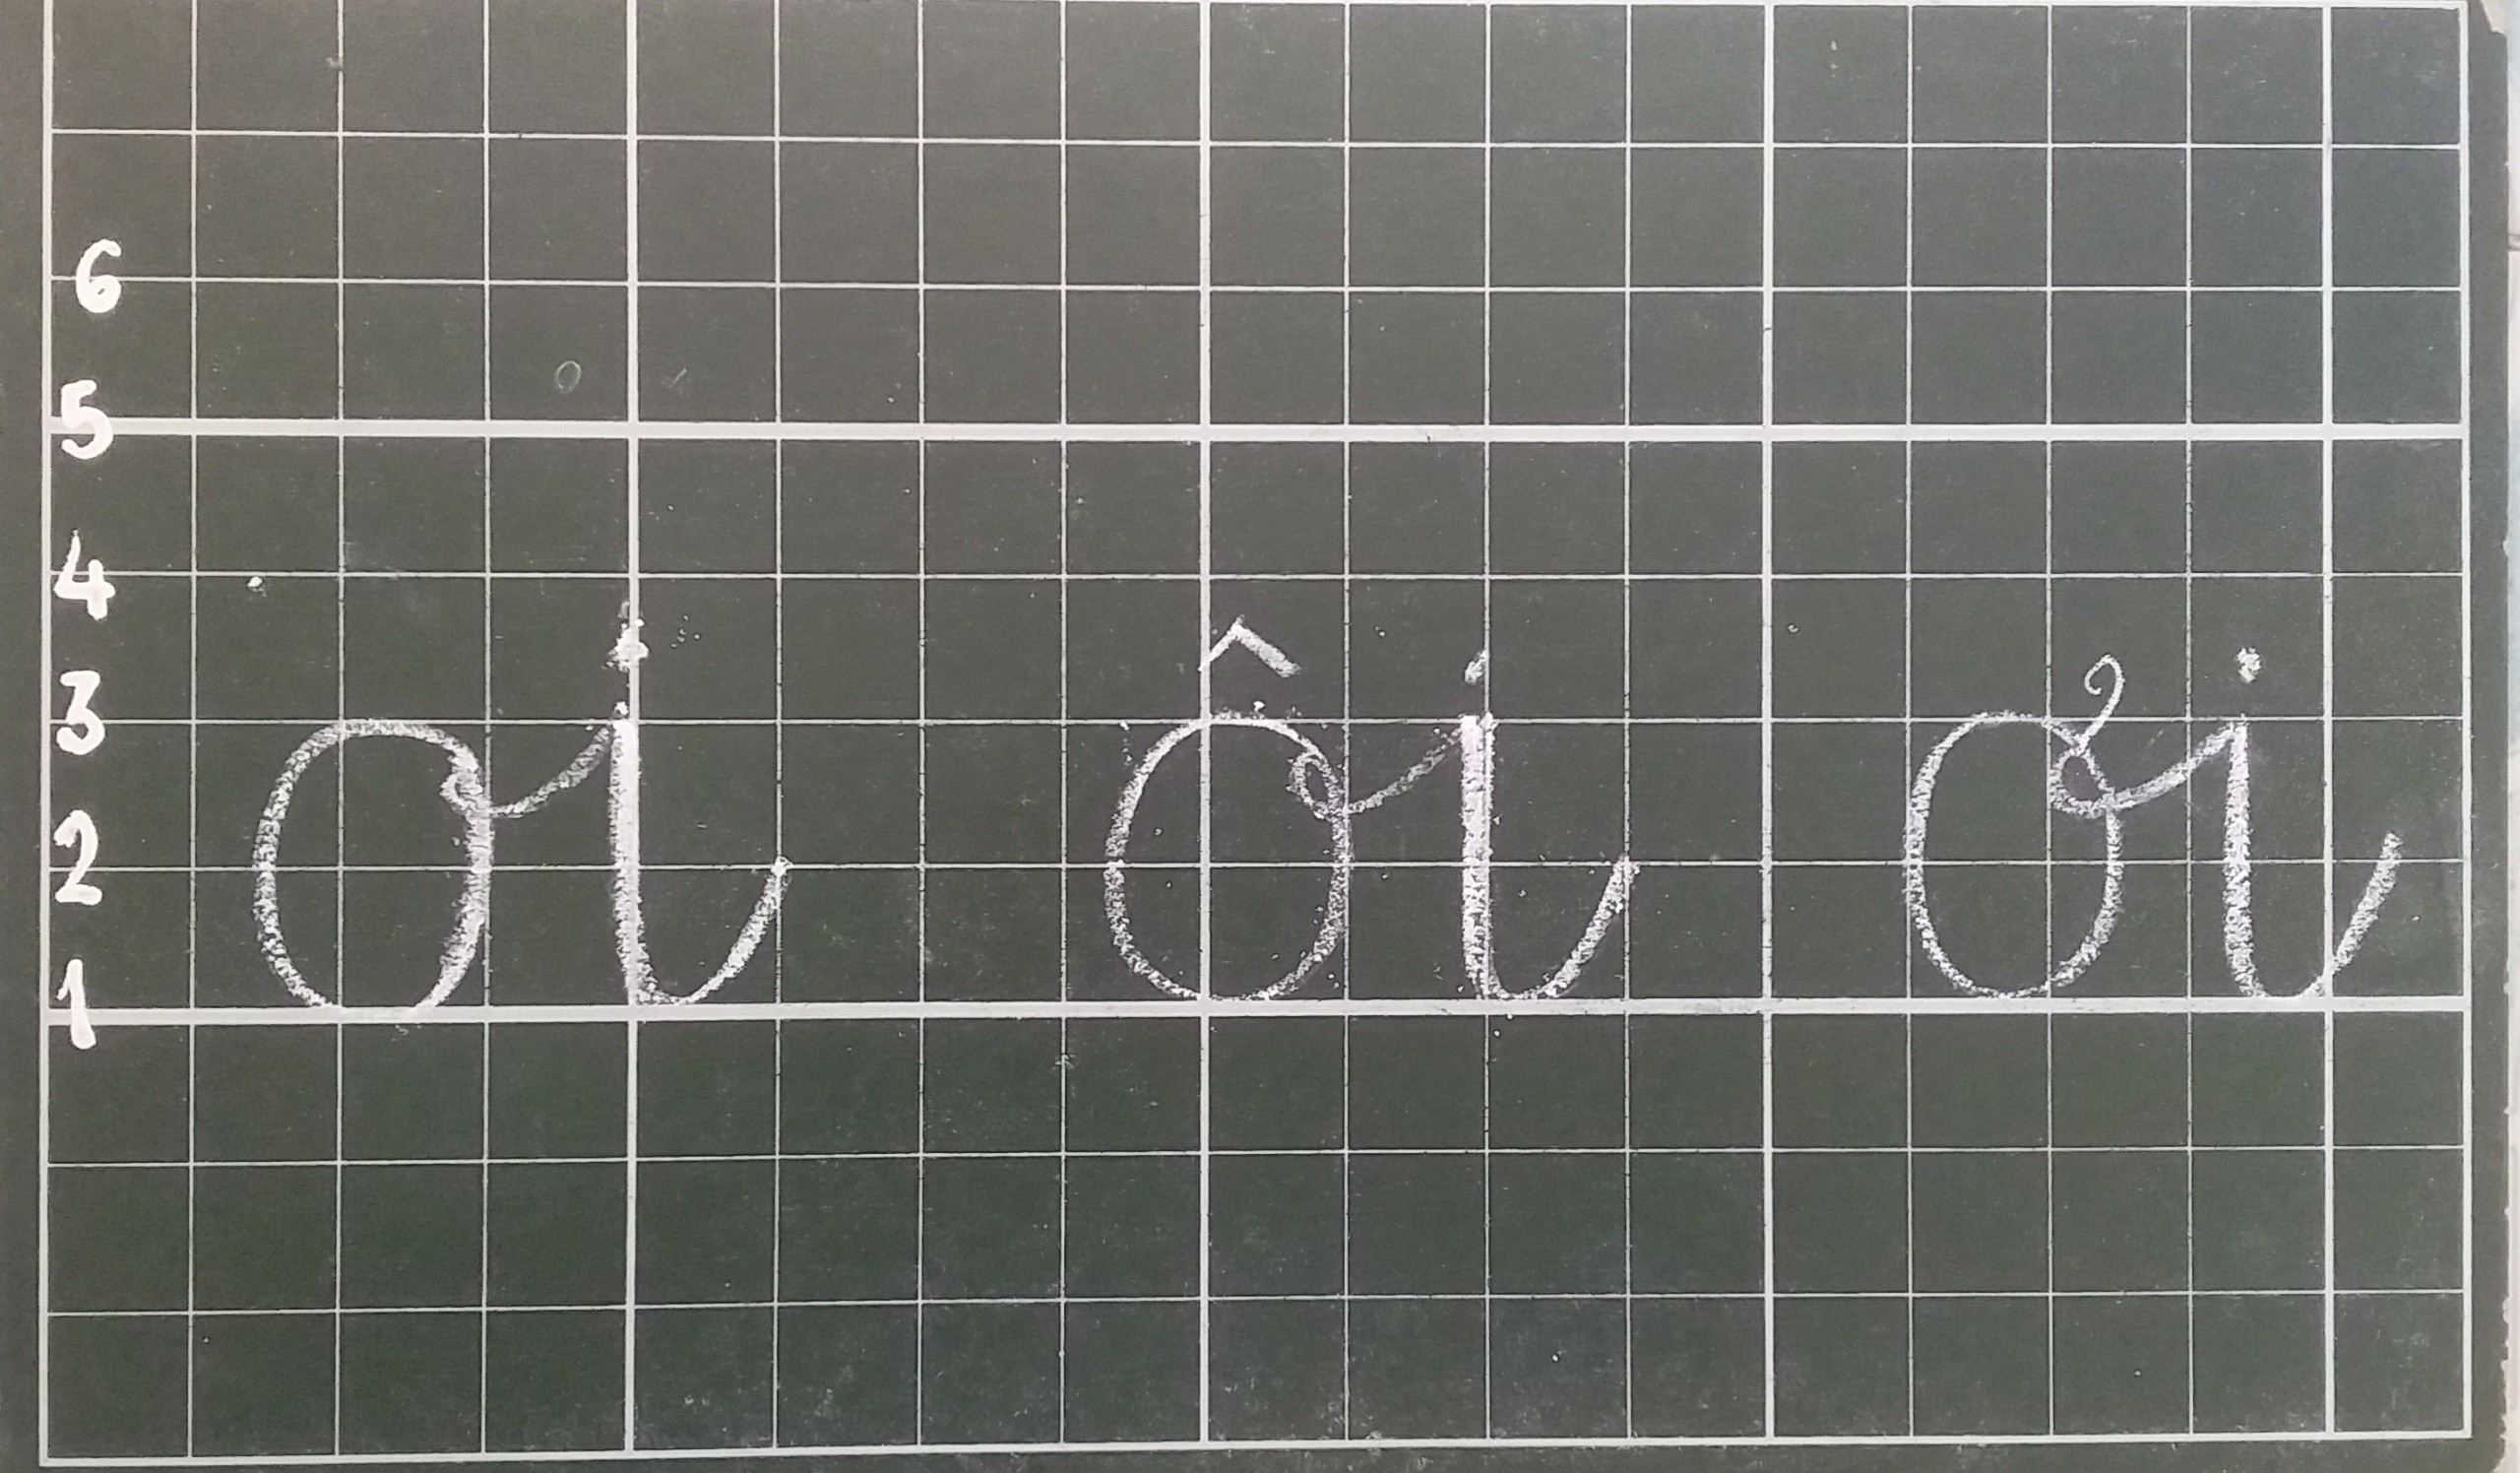 6
5
4
3
2
1
oi ôi ơi